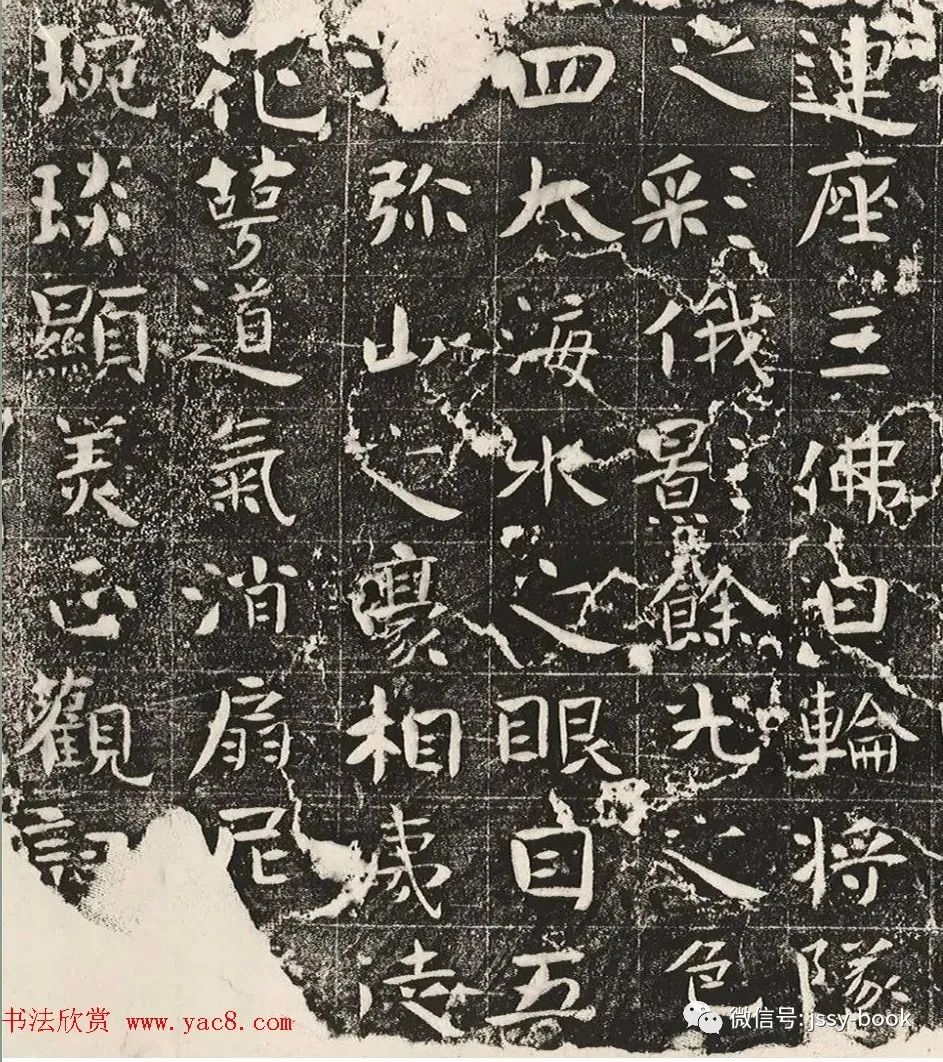 連座三佛日輪将隊
之彩俄晷餘光之色
四大海水之眼目五
弥山之豪相夷
花萼道氣消扇尼
琬琰顯美正觀
书法欣赏 www.yac8.com
微信号:jssy-book